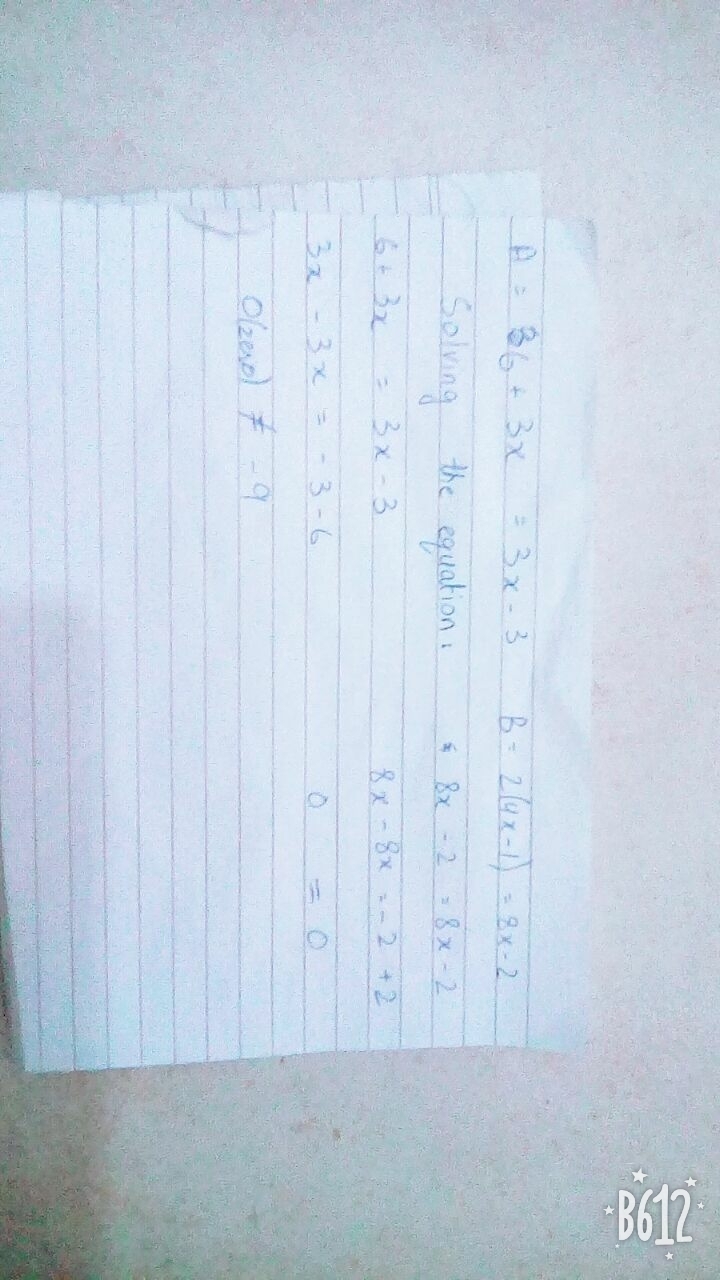 A = 6 + 3x = 3x - 3 B = 2(4x-1) = 8x-2
Solving the equation. = 8x - 2 = 8x - 2
6 + 3x = 3x - 3 8x - 8x = -2 + 2
3x - 3x = -3 - 6 0 = 0
0(zero) ≠ -9
B612